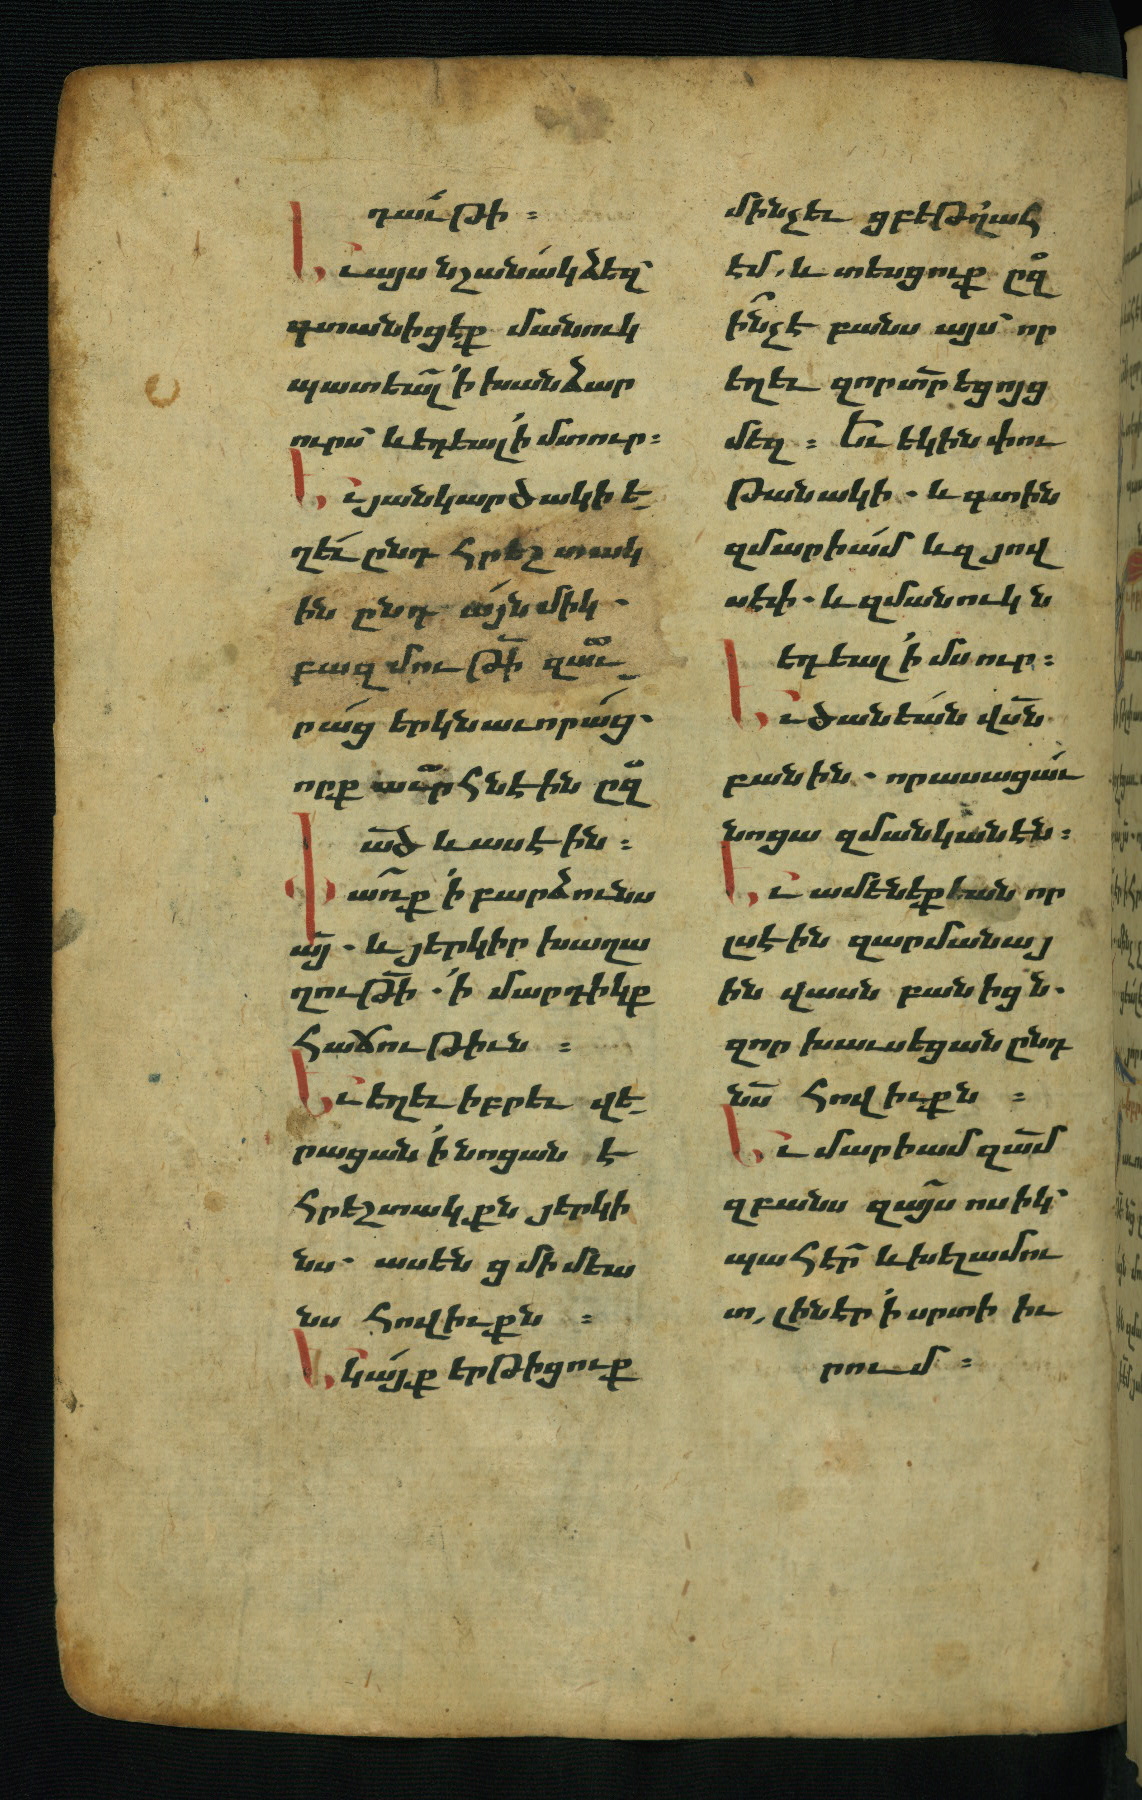 դաւթի ։
Եւ այս նշանակ ձեզ՝
գտանիցէք մանուկ
պատեալ ՚ի խանձար
ուրս՝ և եդեալ ՚ի մսուր ։
Եւ յանկարծակի ե
ղև ընդ հրեշտակ
ին ընդ այնմիկ ․
բազմութի զաւ
րաց երկնաւորաց ․
որք աւրհնէին ըզ
ած և ասէին ։
Փառք ՚ի բարձունս
այ ․ և յերկիր խաղա
ղութի ․ ՚ի մարդիկք
հաճութիւն ։
Եւ եղև իբրև վե
րացան ՚ի նոցան է
հրեշտակքն յերկի
նս ․ ասեն ցմիմեա
նս հովիւքն ։
Եկայք երթիցուք
մինչև ցբեթղահ
էմ, և տեսցուք ըզ
ինչէ բանս այս՝ որ
եղև զոր տր եցոյց
մեզ ։ Եւ եկին փու
թանակի ․ և գտին
զմարիամ և զյով
սէփ ․ և զմանուկն
եդեալ ՚ի մսուր ։
Եւ ծանեան վսն
բանին ․ որ ասացաւ
նոցա զմանկանէն ։
Եւ ամենեքեան որ
լսէին զարմանայ
ին վասն բանիցն ․
զոր խաւսեցան ընդ
նս հովիւքն ։
Եւ մարիամ զամ
զբանս զայս ոսիկ՝
պահէր և խելամու
տ, լինէր ՚ի սրտի իւ
րում ։